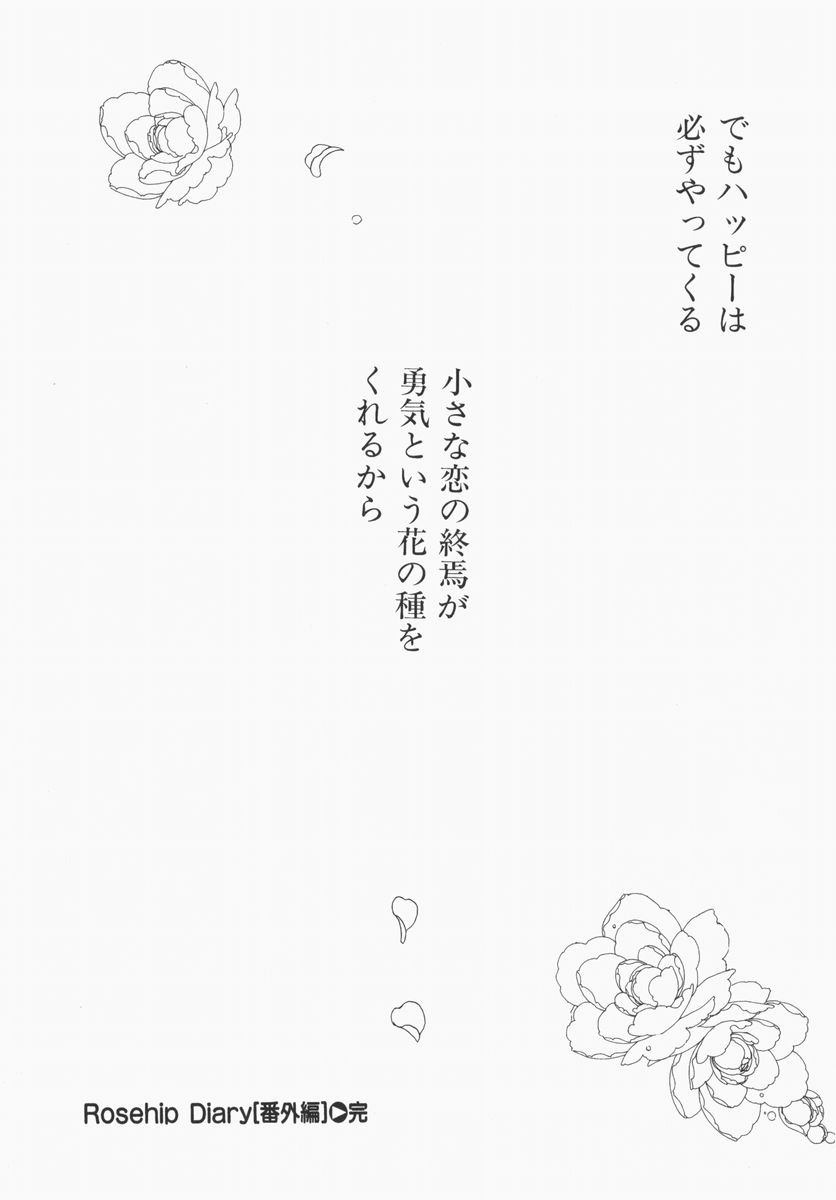 でもハッピーは
必ずやってくる
小さな恋の終焉が
勇気という花の種を
くれるから
Rosehip Diary[番外編]▶完